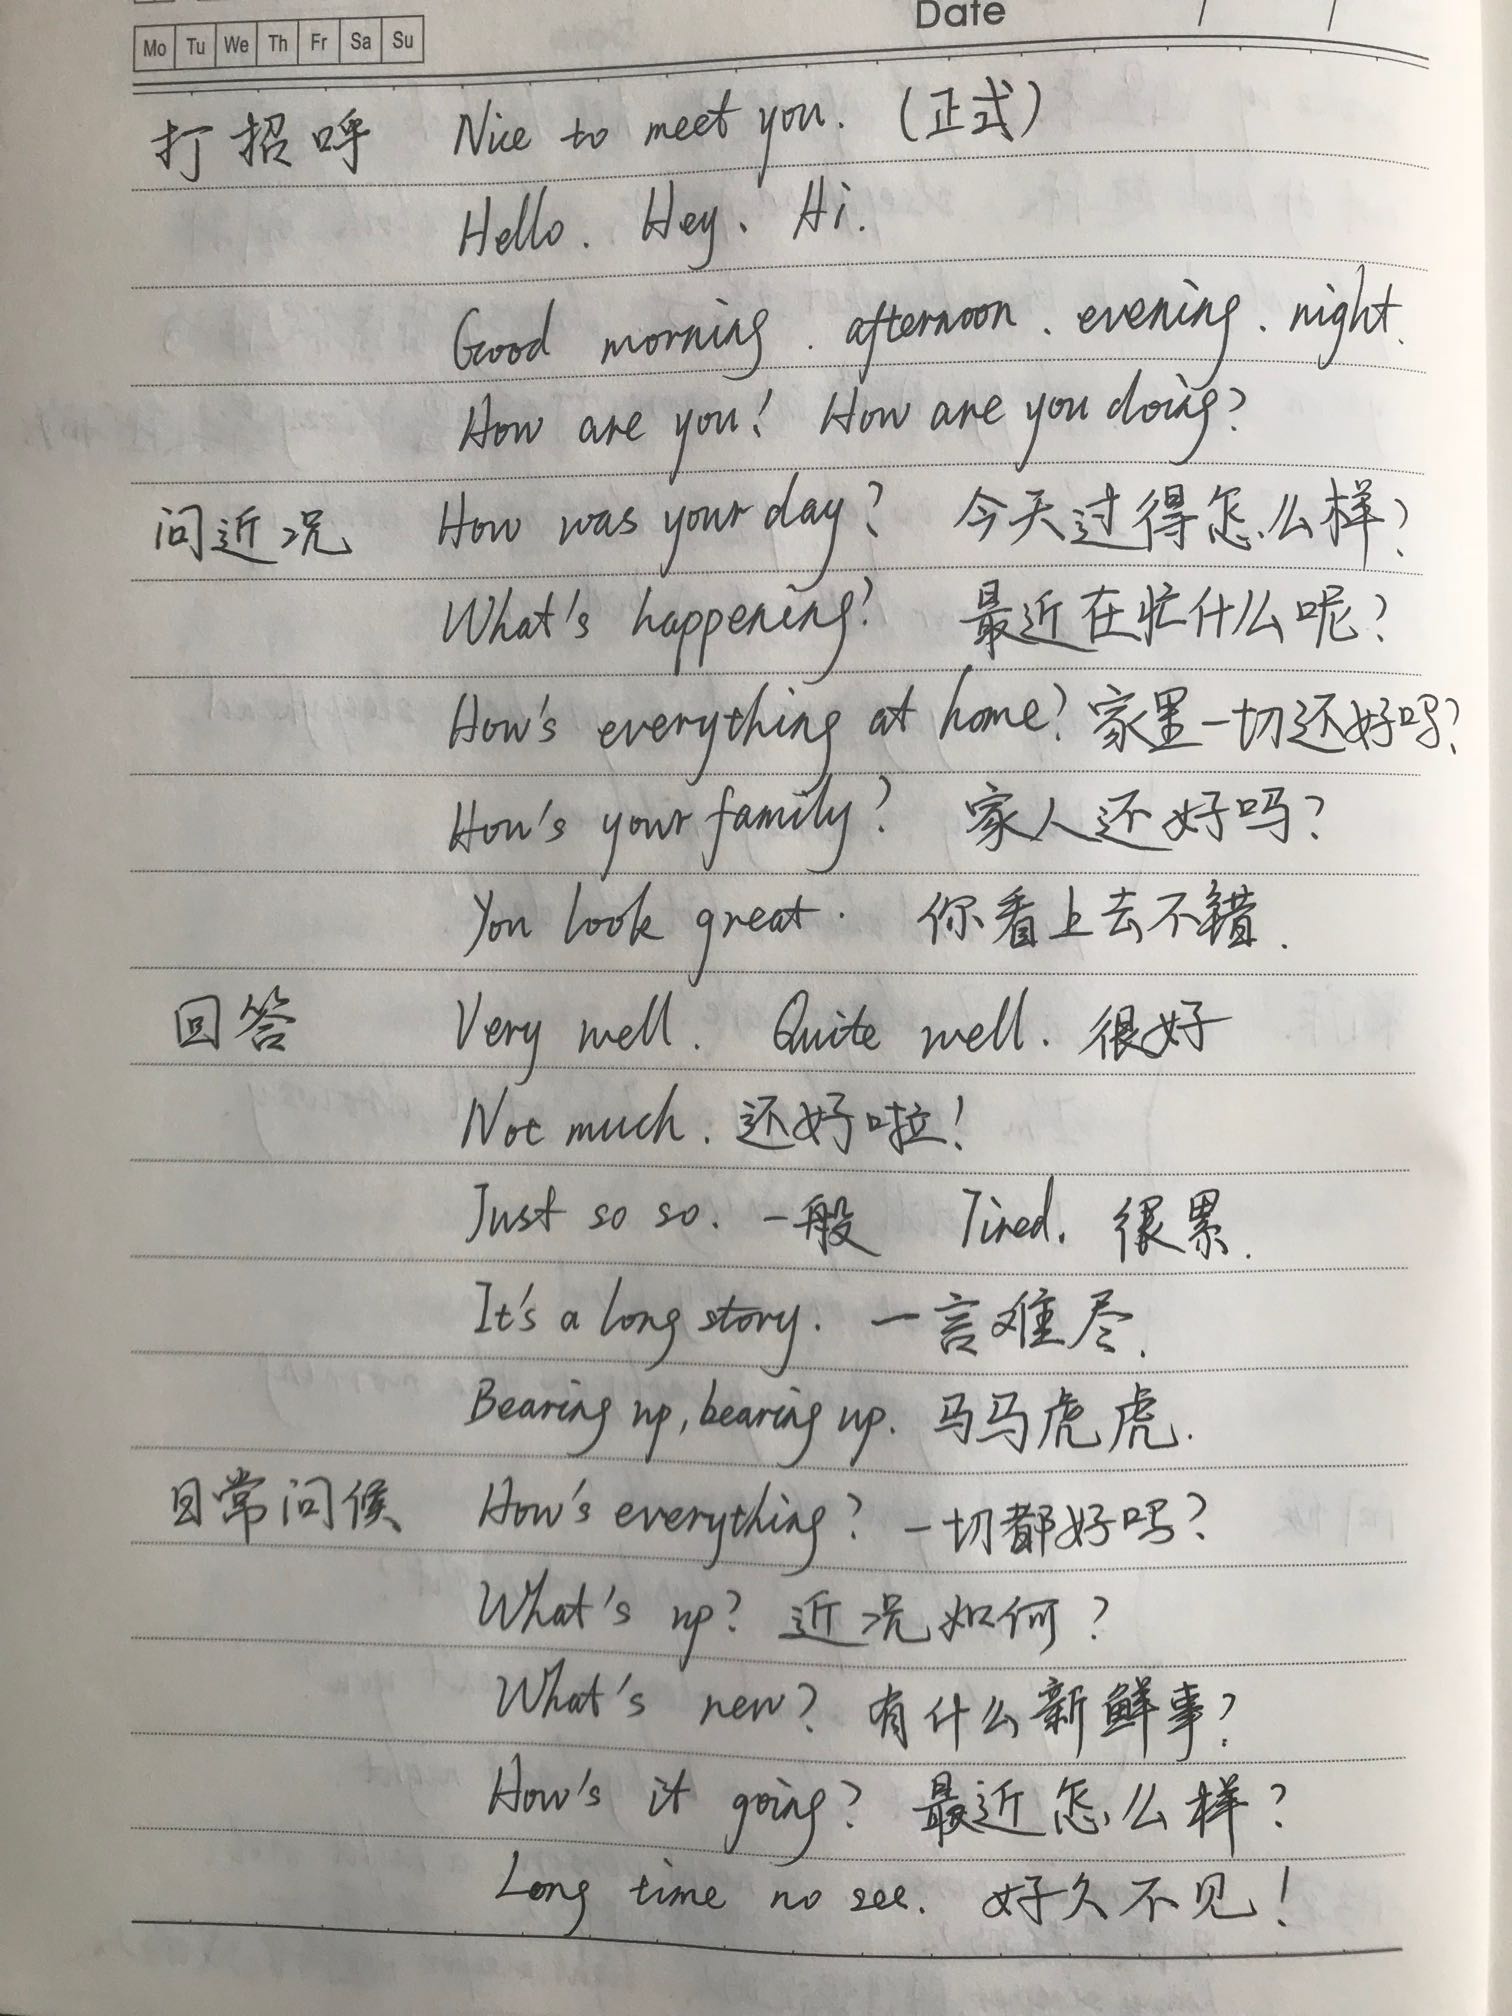 Date / /
Mo Tu We Th Fr Sa Su
打招呼 Nice to meet you. (正式)
Hello. Hey、Hi.
Good morning. afternoon、evening、night.
How are you! How are you doing?
问近况 How was your day? 今天过得怎么样?
What's happening? 最近在忙什么呢?
How's everything at home? 家里一切还好吗?
How's your family? 家人还好吗?
You look great. 你看上去不错.
回答 Very well. Quite well. 很好
Not much. 还好啦!
Just so so. 一般 Tired. 很累.
It's a long story. 一言难尽.
Bearing up, bearing up. 马马虎虎.
日常问候 How's everything? 一切都好吗?
What's up? 近况如何?
What's new? 有什么新鲜事?
How's it going? 最近怎么样?
Long time no see. 好久不见!